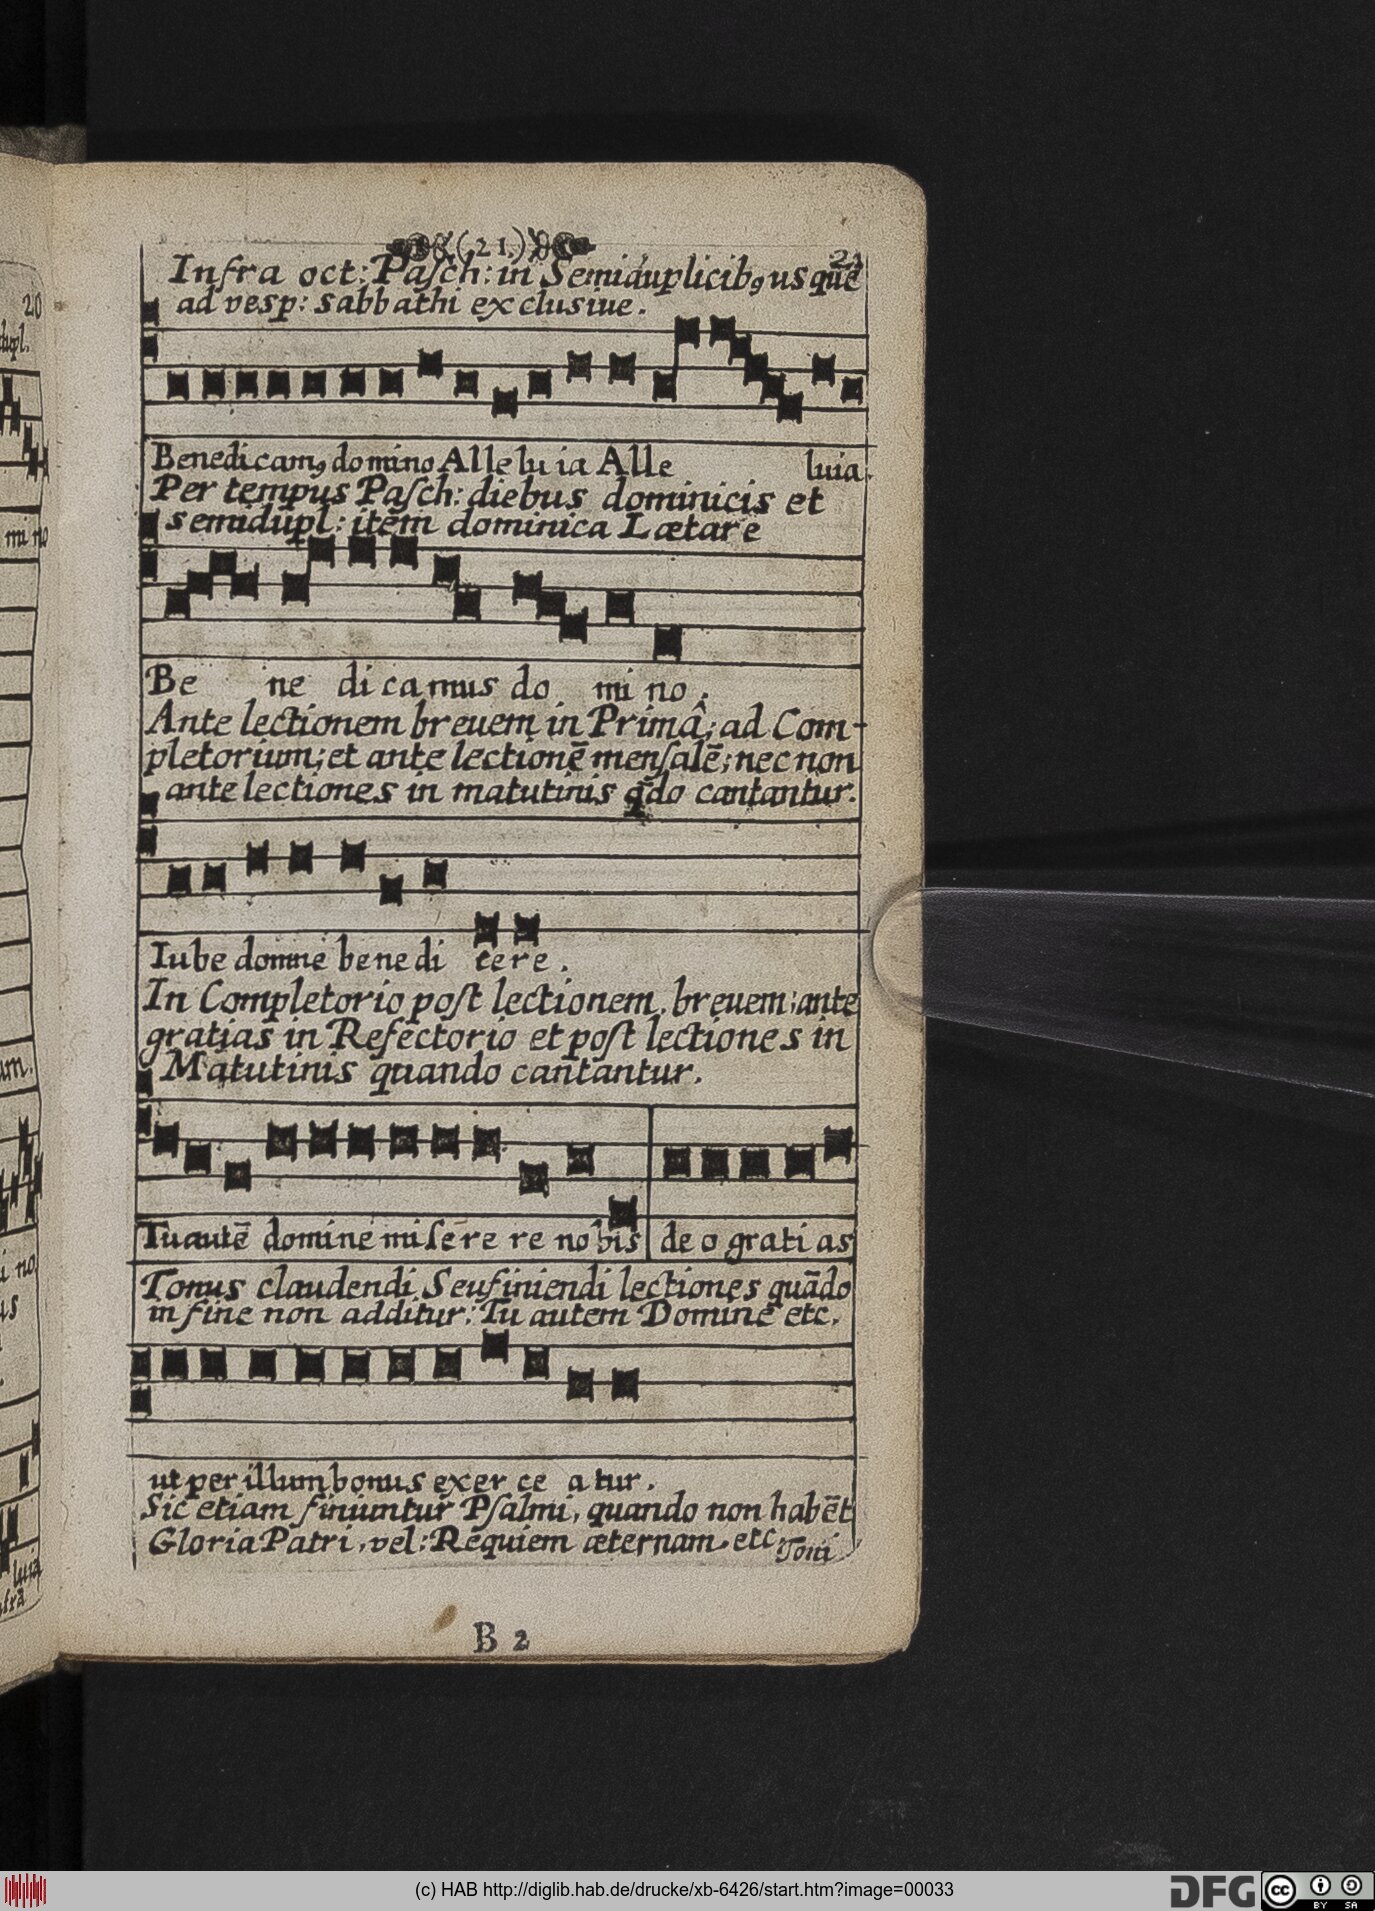 (21.)
21
Infra oct: Paſch: in Semiduplicibꝯ usque
ad vesp: sabbathi exclusiue.
Benedicamꝯ domino Alle lu ia Alle luia.
Per tempus Paſch: diebus dominicis et
semidupl: item dominica Lætare
Be ne di ca mus do mi no.
Ante lectionem breuem in Primâ; ad Com-
pletorium; et ante lectionē menſalē; nec non
ante lectiones in matutinis qdo cantantur.
Iube domine bene di cere.
In Completorio poſt lectionem breuem; ante
gratias in Refectorio et poſt lectiones in
Matutinis quando cantantur.
Tu autē domine miſere re nobis de o grati as
Tonus claudendi Seu finiendi lectiones quādo
in fine non additur: Tu autem Domine etc.
ut per illum bonus exer ce a tur.
Sic etiam finiuntur Pſalmi, quando non habēt
Gloria Patri, vel: Requiem æternam. etc. Toni
B 2
20
dupl.
mi no
um.
i no
us
luia
nfra
(c) HAB http://diglib.hab.de/drucke/xb-6426/start.htm?image=00033
DFG
cc BY SA